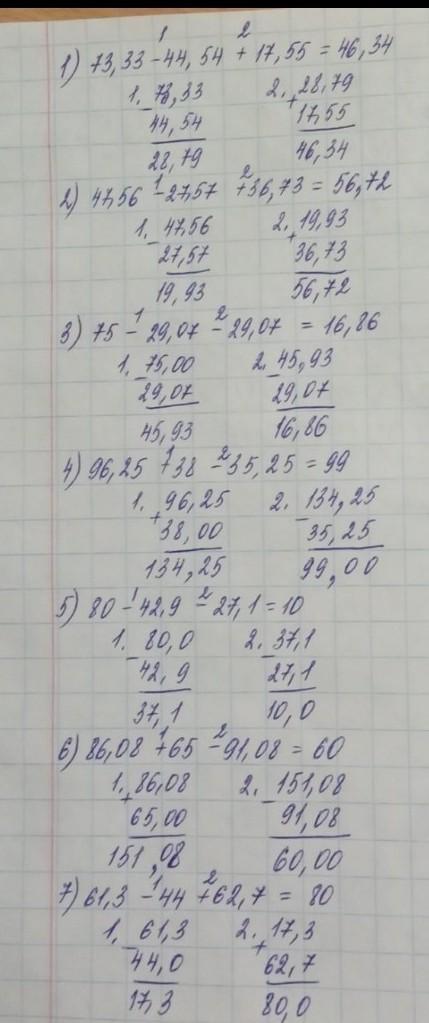 1 2
1) 73,33 - 44,54 + 17,55 = 46,34
1. 73,33 2. 28,79
- +
44,54 17,55
28,79 46,34
1 2
2) 47,56 - 27,57 + 36,73 = 56,72
1. 47,56 2. 19,93
- +
27,57 36,73
19,93 56,72
1 2
3) 75 - 29,07 - 29,07 = 16,86
1. 75,00 2. 45,93
- -
29,07 29,07
45,93 16,86
1 2
4) 96,25 + 38 - 35,25 = 99
1. 96,25 2. 134,25
+ -
38,00 35,25
134,25 99,00
1 2
5) 80 - 42,9 - 27,1 = 10
1. 80,0 2. 37,1
- -
42,9 27,1
37,1 10,0
1 2
6) 86,08 + 65 - 91,08 = 60
1. 86,08 2. 151,08
+ -
65,00 91,08
151,08 60,00
1 2
7) 61,3 - 44 + 62,7 = 80
1. 61,3 2. 17,3
- +
44,0 62,7
17,3 80,0